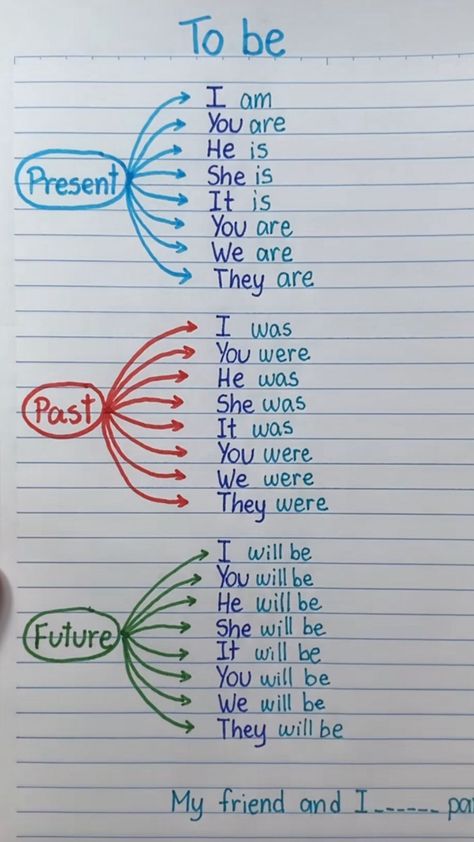 To be
Present
I am
You are
He is
She is
It is
You are
We are
They are
Past
I was
You were
He was
She was
It was
You were
We were
They were
Future
I will be
You will be
He will be
She will be
It will be
You will be
We will be
They will be
My friend and I ------